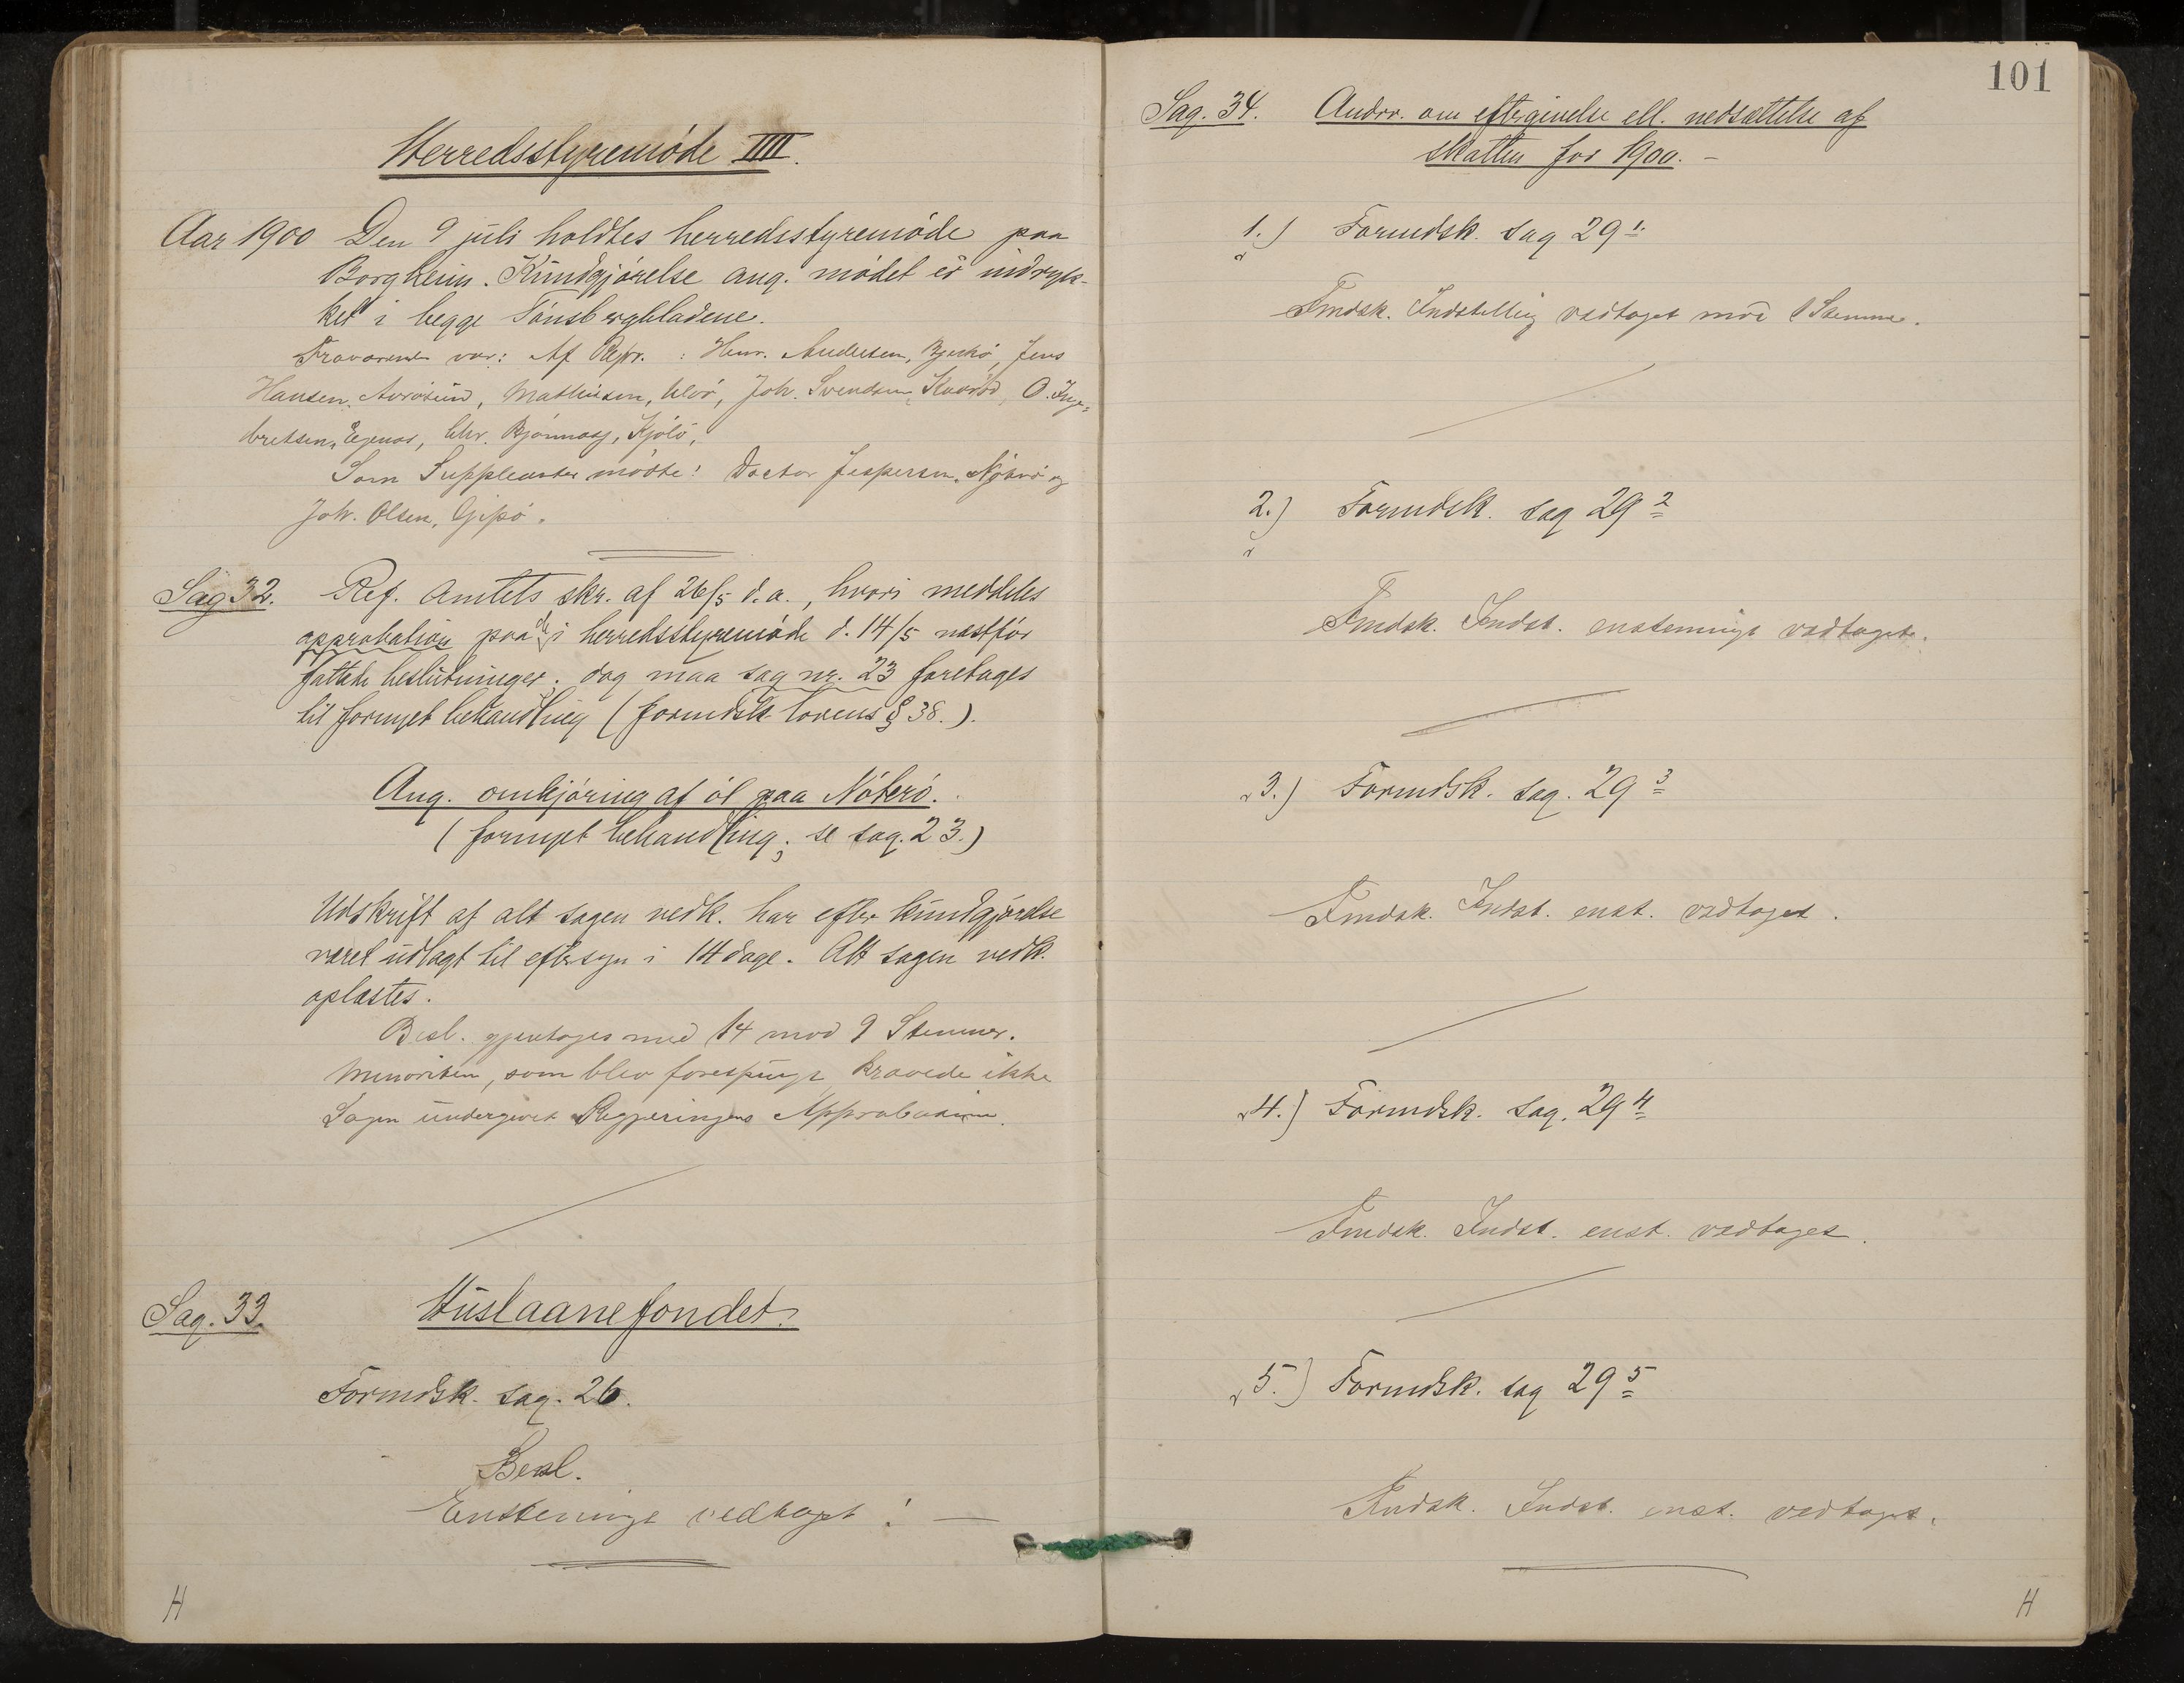 Herredsstyremöde IIII.
Aar 1900 Den 9 juli holdtes herredsstyremöde paa
Borgheim. Kundgjörelse ang. mödet er indryk-
ket i begge Tönsbergbladene.
Fraværende var: Af Repr. : Henr. Andersen, Jens
Hansen, Mathisen, Joh. Svendsen, O. Inge-
bretsen, Chr. Kjölö,
Som Suppleanter mödte: Doctor Jespersen, Nöterö og
Joh. Olsen, Gipö.
Sag 32. Ref. Amtets skr. af 26/5 d. a., hvori meddeles
approbation paa de i herredsstyremöde d. 14/5 næstför
fattede beslutninger; dog maa sag nr. 23 foretages
til fornyet behandling (formdsk. lovens § 38.).
Ang. omkjöring af öl paa Nöterö.
(fornyet behandling; se sag. 23.)
Udskrift af alt sagen vedk. har efter kundgjörelse
været udlagt til eftersyn i 14 dage. Alt sagen vedk.
oplæstes.
Besl. gjentoges med 14 mod 9 Stemmer.
Minoriteten, som blev forespurgt krævede ikke
Sagen undergivet Regjeringens Approbation.
Sag. 33. Huslaanefondet.
Formdsk. sag. 26.
Besl.
Enstemmigt vedtaget! —
H
101
Sag. 34. Andrr. om eftergivelse ell. nedsættelse af
skatten for 1900. –
1.) Formdsk. sag 29 1.
Fmdsk. Indstilling vedtaget mod 1 Stemme.
2.) Formdsk. sag 29 2
Fmdsk. Indst. enstemmigt vedtaget.
3.) Formdsk. sag. 29 3
Fmdsk. Indst. enst. vedtaget.
4.) Formdsk. sag. 29 4
Fmdsk. Indst. enst. vedtaget.
5.) Formdsk. sag 29 5
Fmdsk. Indst. enst. vedtaget.
H